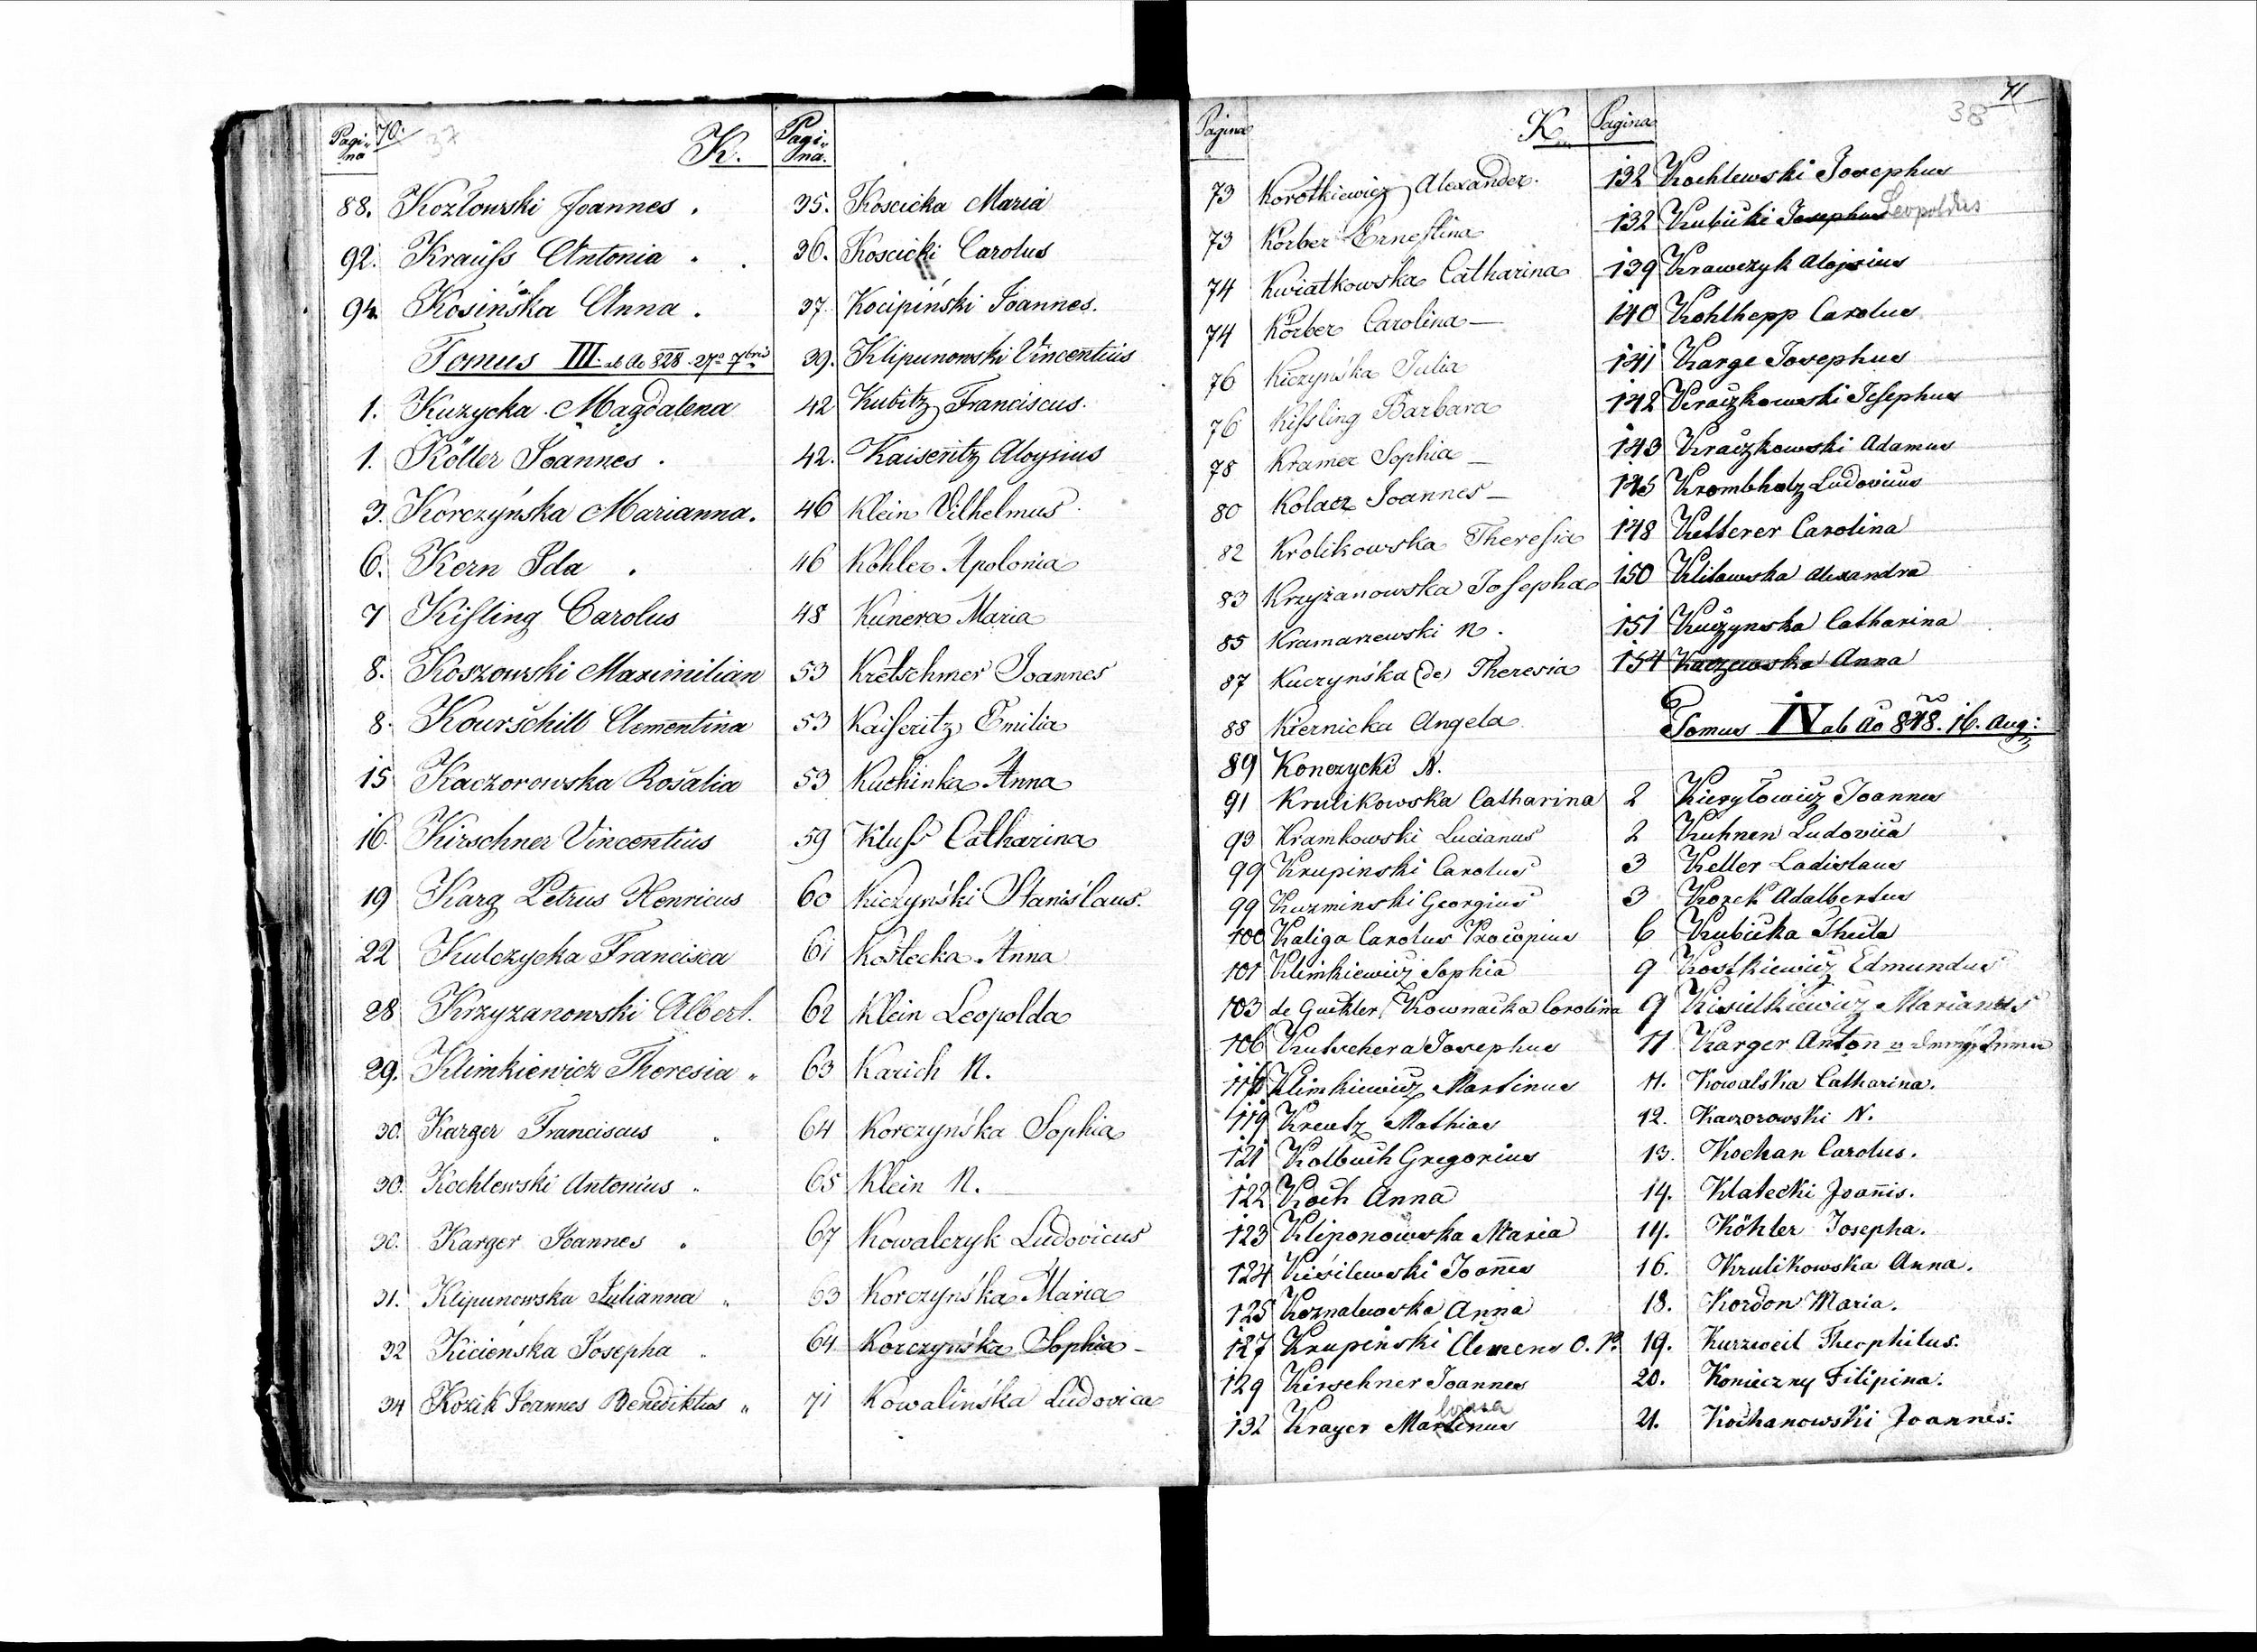 Pagina 70. 37 K. Pagina.
88. Kozłowski Joannes.
92. Krauss Antonia.
94. Kosińska Anna.
Tomus III. ab Ao 828. 27a 7bris
1. Kuzycka Magdalena
1. Köller Joannes.
3. Korczyńska Marianna.
6. Kern Ida.
7 Kissling Carolus
8. Koszowski Maximilian
8. Kourschill Clementina
15 Kaczorowska Rosalia
16. Kirschner Vincentius
19 Karg Petrus Henricus
22 Kulczycka Francisca
28 Krzyzanowski Albert.
29. Klimkiewicz Theresia "
30. Karger Franciscus "
30. Kochlewski Antonius "
30. Karger Joannes "
31. Klipunowska Julianna "
32 Kicieńska Josepha "
34 Kozik Joannes Benediktus "
35. Koscicka Maria
36. Koscicki Carolus
37. Kocipiński Joannes.
39. Klipunowski Vincentius
42 Kubitz Franciscus.
42. Kaiseritz Aloysius
46 Klein Vilhelmus
46 Köhler Apolonia
48 Kunera Maria
53 Kretschmer Joannes
53 Kaiseritz Emilia
53 Kuchinka Anna
59 Kluss Catharina
60 Kiczyński Stanislaus.
61 Kostecka Anna
62 Klein Leopolda
63 Karich N.
64 Korczyńska Sophia
65 Klein N.
67 Kowalczyk Ludovicus
63 Korczyńska Maria
64 Korczyńska Sophia
71 Kowalińska Ludovica
Pagina K. Pagina 38 71
73 Korotkiewicz Alexander.
73 Körber Ernestina
74 Kwiatkowska Catharina
74 Körber Carolina —
76 Kiczyńska Julia
76 Kissling Barbara
78 Kramer Sophia —
80 Kolacz Joannes —
82 Krolikowska Theresia
83 Krzyżanowska Josepha
85 Kramarzewski N.
87 Kuczyńska (de) Theresia
88 Kiernicka Angela
89 Konczycki N.
91 Krulikowska Catharina
93 Kramkowski Lucianus
99 Krupinski Carolus
99 Kuzminski Georgius
100 Kaliga Carolus Procopius
101 Klimkiewicz Sophia
103 de Kownacka Carolina
106 Kutschera Josephus
Klimkiewicz Martinus
119 Kreutz Mathias
121 Kolbuch Gregorius
122 Koch Anna
123 Kliponowska Maria
124 Kisilewski Joannes
125 Anna
127 Krupiński Clemens O. P.
129 Kirschner Joannes
132 Krayer Martinus
132 Kochlewski Josephus
132 Kubicki Josephus Leopoldus
139 Krawczyk Alojsius
140 Kohlhepp Carolus
141 Karge Josephus
142 Kraczkowski Josephus
143 Kraczkowski Adamus
145 Krombholz Ludovicus
148 Ketterer Carolina
150 Alexandra
151 Kuczynska Catharina
154 Kaczewska Anna
Tomus IV ab Ao 848. 16. Aug:
2 Kieryłowicz Joannes
2 Kuhnen Ludovica
3 Keller Ladislaus
3 Korek Adalbertus
6 Kubicka Thecla
9 Kostkiewicz Edmundus
9 Kisielkiewicz Marianus
11 Karger Anton
11. Kowalska Catharina.
12. Kaczorowski N.
13. Kochan Carolus.
14. Klatecki Joannis.
14. Köhler Josepha.
16. Krulikowska Anna.
18. Kordon Maria.
19. Kurzweil Theophilus.
20. Konieczny Filipina.
21. Kochanowski Joannes.